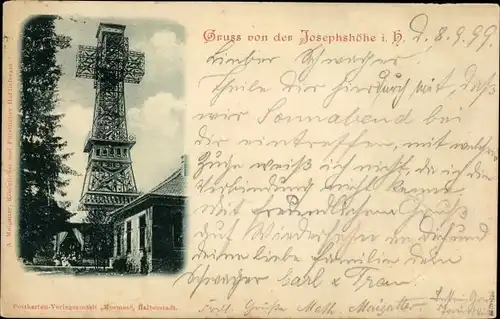 Gruss von der Josephshöhe i. H. d. 8.9.99.
Lieber Schwager!
Theile dir hierdurch mit, daß
wir Sonnabend bei
dir eintreffen, mit welchem
Zuge weiß ich nicht, da ich die
Verbindung nicht kenne.
Mit freundlichem Gruß
auf Wiedersehen an dich und
deine liebe Familie dein
Schwager Carl & Frau.
Grüße
A. Königlicher und Fürstlicher Hof
Postkarten-Verlagsanstalt „Mormes“, Halberstadt.